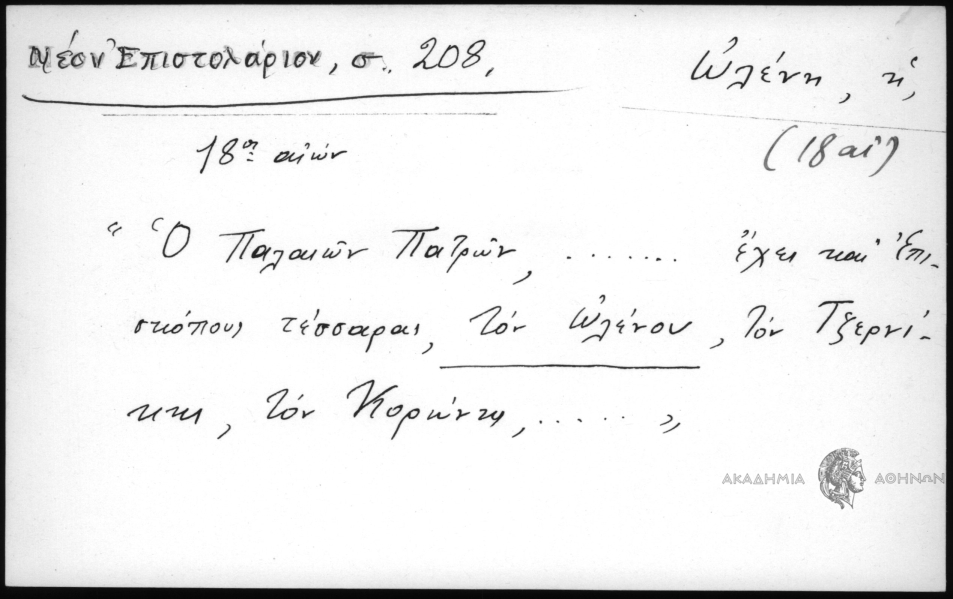 Νέον Ἐπιστολάριον, σ. 208,
Ὠλένη, ἡ,
18ος αἰών
(18 αἰ)
“ Ὁ Παλαιῶν Πατρῶν, ....... ἔχει καὶ Ἐπι-
σκόπους τέσσαρας, τόν Ὠλένου, τόν Τζερνί-
κης, τόν Κορώνης, ..... »
ΑΚΑΔΗΜΙΑ ΑΘΗΝΩΝ